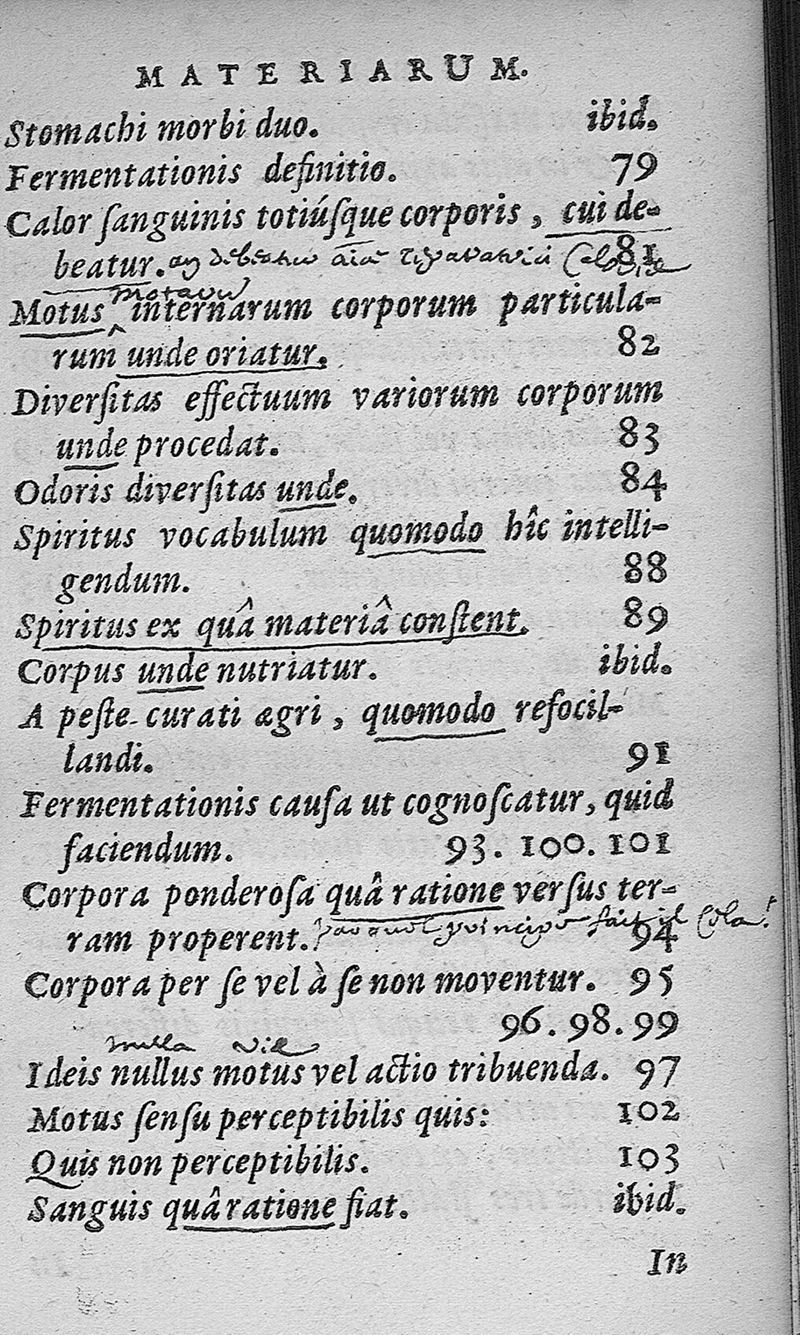 MATERIARUM.
Stomachi morbi duo. ibid.
Fermentationis definitio. 79
Calor ſanguinis totiúſque corporis, cui de-
beatur. 81
Motus internarum corporum particula-
rum unde oriatur. 82
Diverſitas effectuum variorum corporum
unde procedat. 83
Odoris diverſitas unde. 84
Spiritus vocabulum quomodo hîc intelli-
gendum. 88
Spiritus ex quâ materiâ conſtent. 89
Corpus unde nutriatur. ibid.
A peſte curati ægri, quomodo refocil-
landi. 91
Fermentationis cauſa ut cognoſcatur, quid
faciendum. 93. 100. 101
Corpora ponderoſa quâ ratione verſus ter-
ram properent. par quel principe fait il cela? 94
Corpora per ſe vel à ſe non moventur. 95
96. 98. 99
nulla
Ideis nullus motus vel actio tribuenda. 97
Motus ſenſu perceptibilis quis: 102
Quis non perceptibilis. 103
Sanguis quâ ratione fiat. ibid.
In